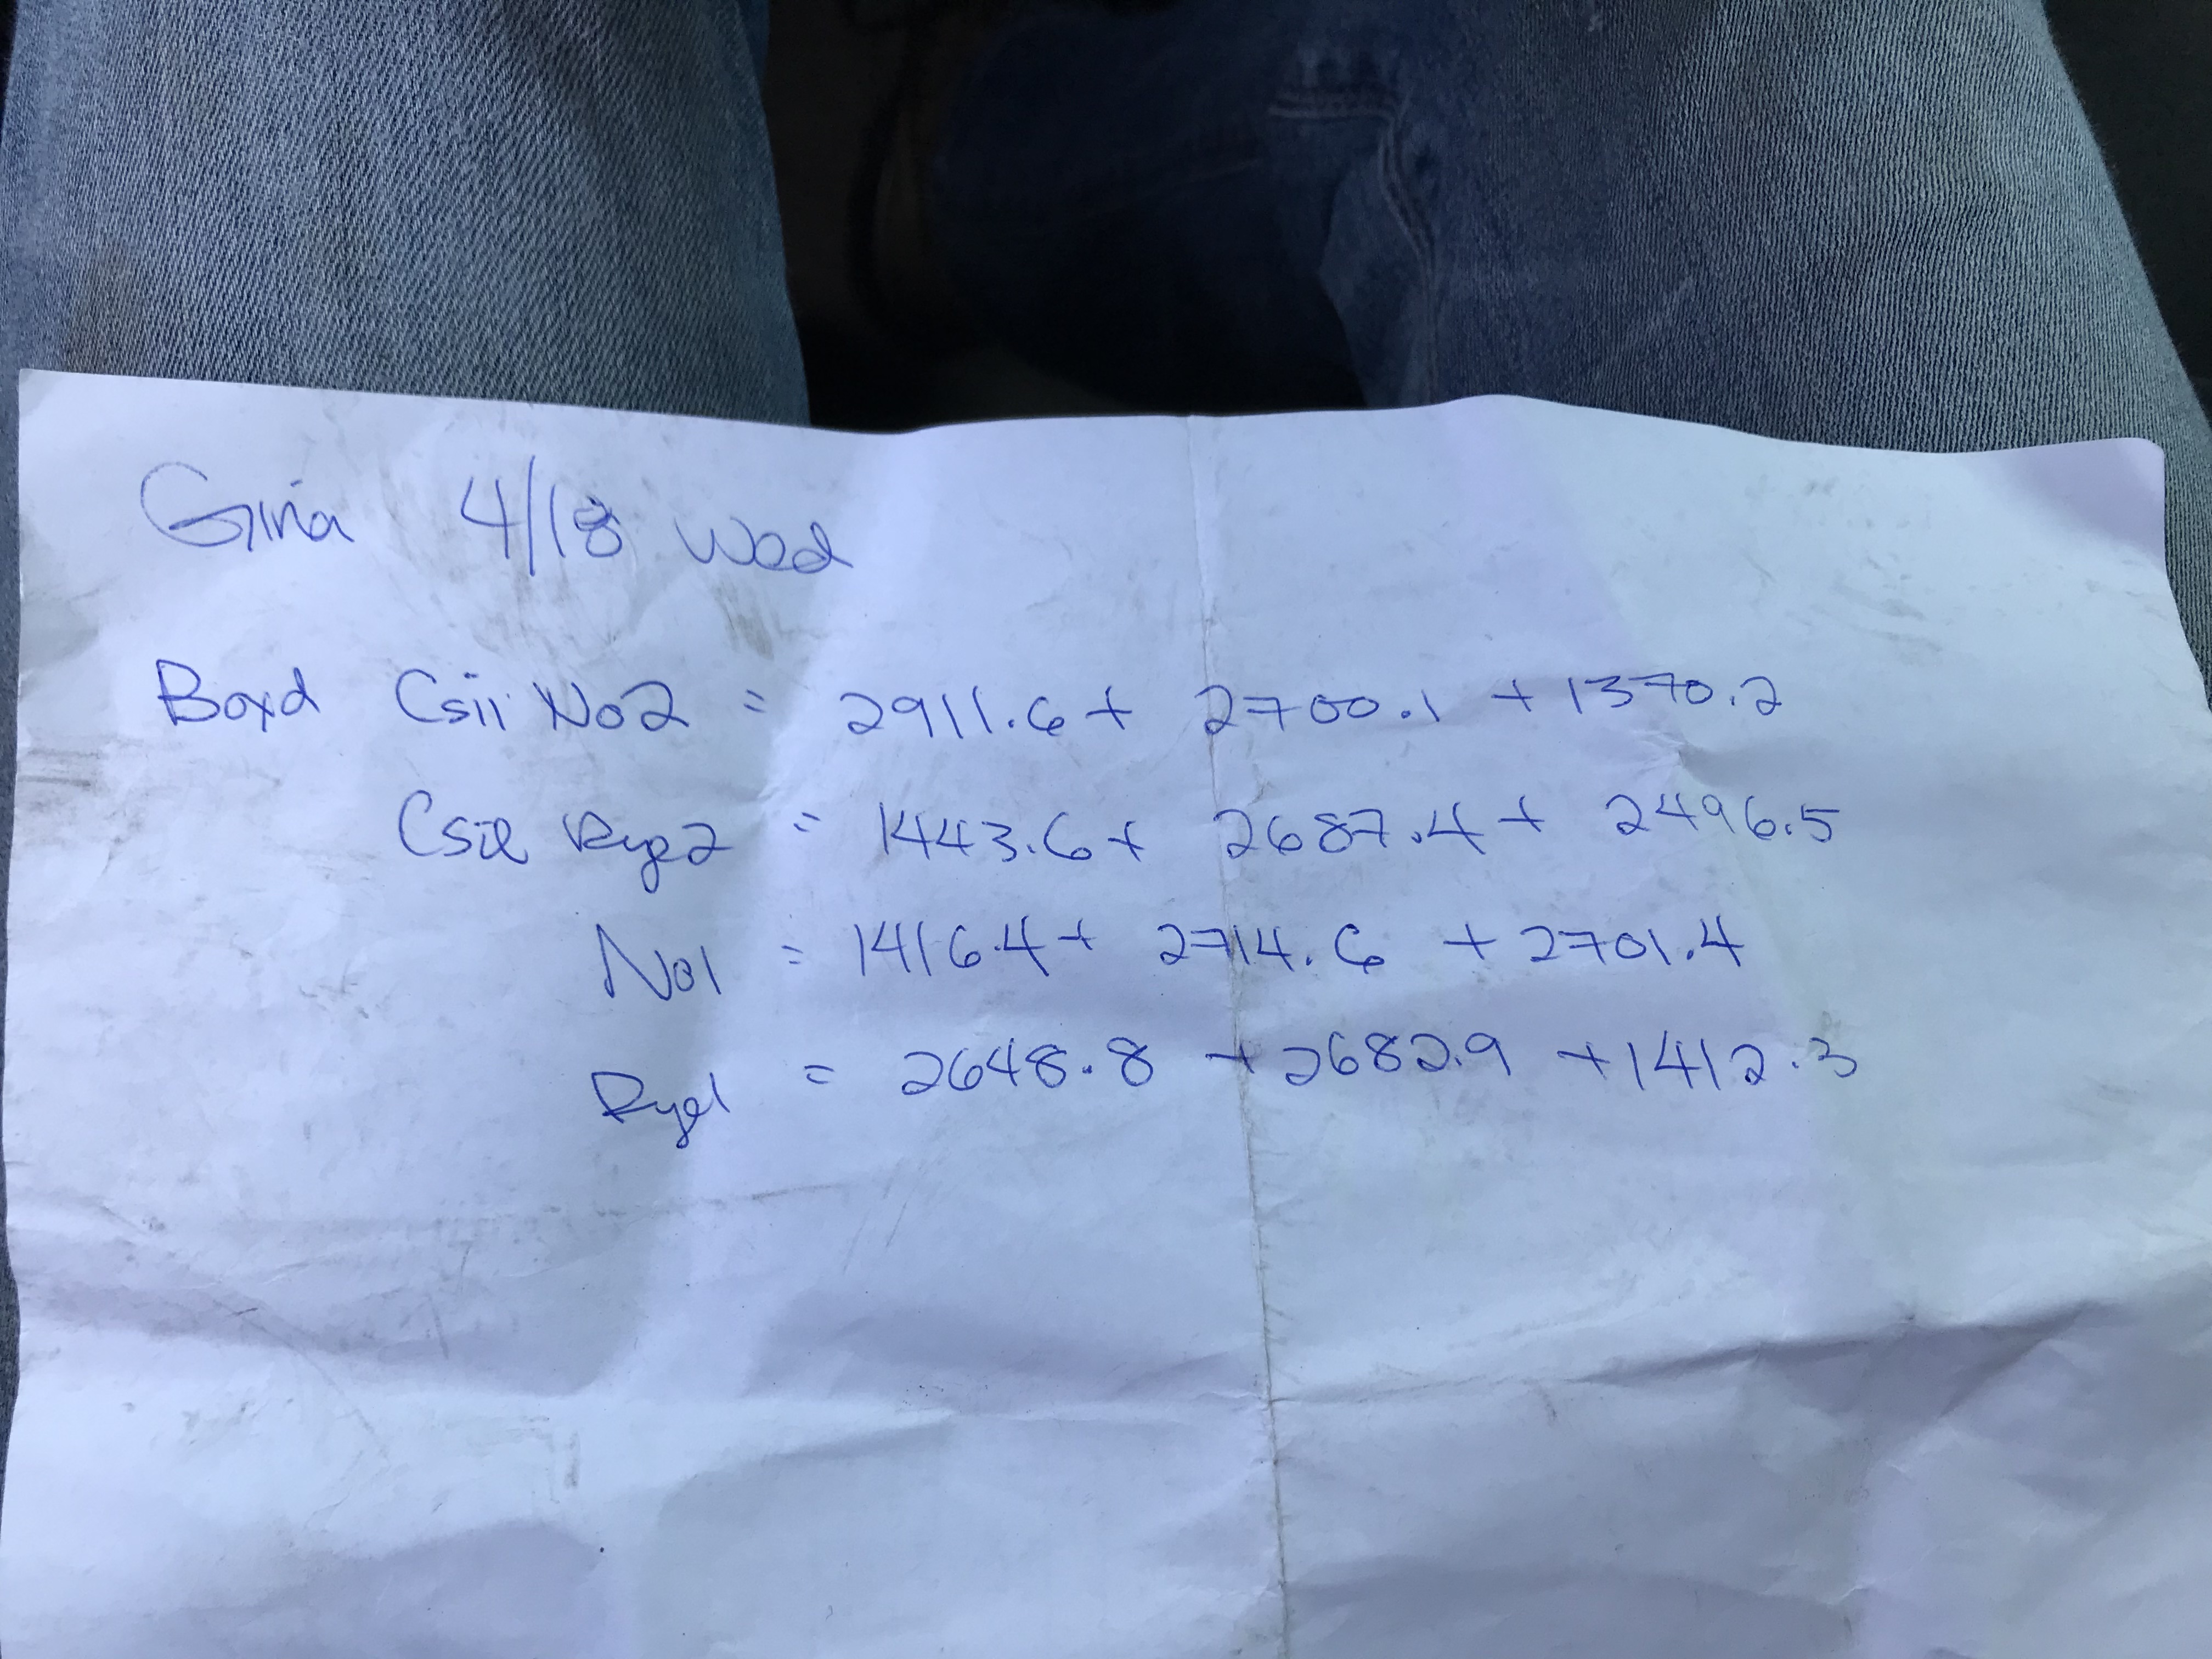 Gina 4/18 Wed
Boxd Csii No2 = 2911.6 + 2700.1 + 1370.2
Csii Rye2 = 1443.6 + 2687.4 + 2496.5
No1 = 1416.4 + 2714.6 + 2701.4
Rye1 = 2648.8 + 2682.9 + 1412.3